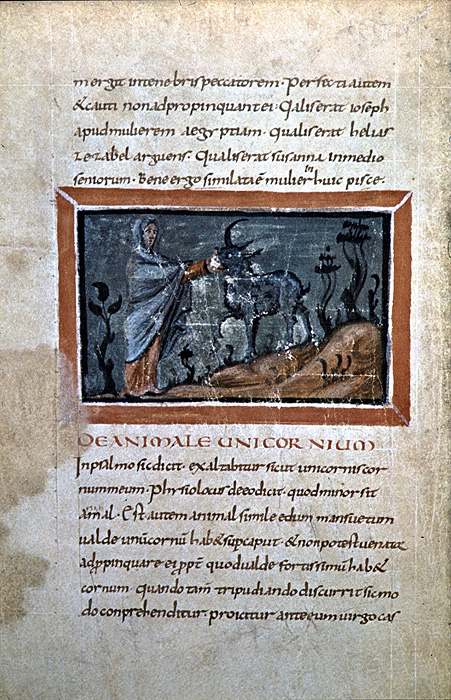 mergit intenebrispeccatorem· Perfecti autem
& cauti non adpropinquant ei· Qaliserat ioseph
apud mulierem aegyptiam· Qualiserat helias
zezabel arguens· Qualiserat susanna in medio
seniorum· Bene ergo similata ē mulier huic pisce·
in
DE ANIMALE UNICORNIUM
In psalmo sic dicit· exaltabitur sicut unicornis cor
nummeum· Phisiolocus deeo dicit· quod minor sit
animal· Est autem animal simile edum mansuetum
ualde· unū cornū hab& sup caput· & non potest uenator
adppinquare ei ppt̄ quod ualde fortissimū hab&
cornum· quando tam̄ tripudiando discurrit sic mo
do conprehenditur· proicitur ante eum uirgo cas